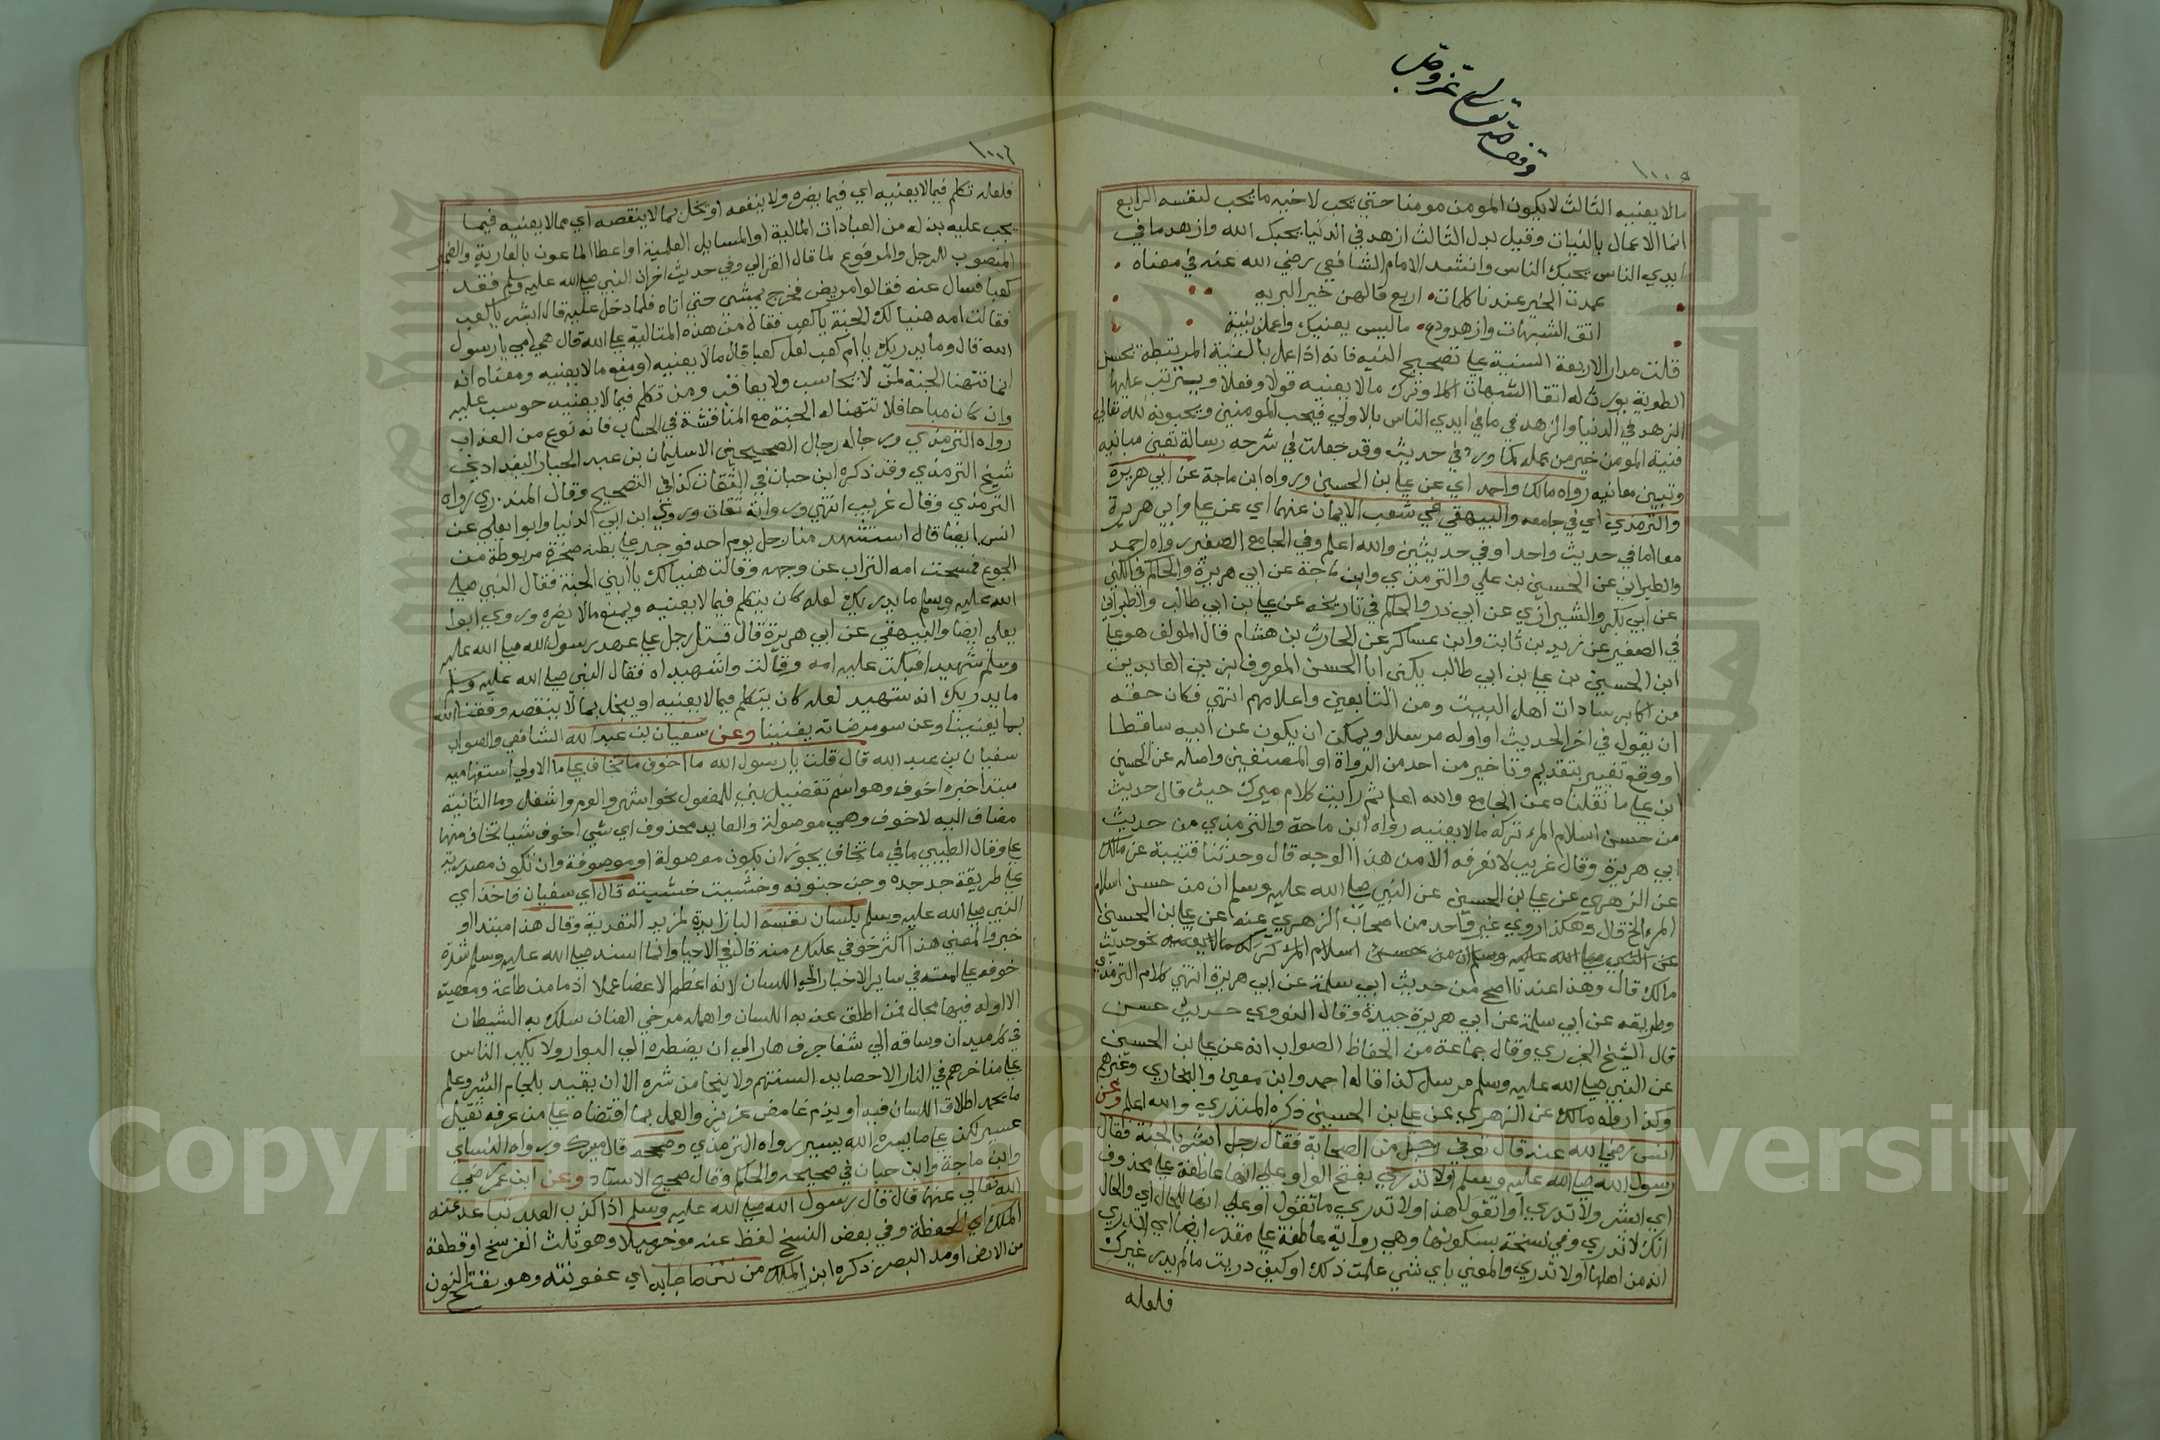 وقف لله تعالى عز وجل
١٠٠٥
ما لا يعنيه الثالث لا يكون المومن مومنا حتى يحب لاخيه ما يحب لنفسه الرابع
انما الاعمال بالنيات وقيل بدل الثالث ازهد في الدنيا يحبك الله وازهد ما في
ايدي الناس يحبك الناس وانشد الامام الشافعي رضي الله عنه في معناه
عمدة الخير عندنا كلمات اربع قالهن خير البريه
اتق الشبهات وازهد ودع ما ليس يعنيك واعملن بنية
قلت مدار الاربعة السنية على تصحيح النيه فانه اذا عمل بالنية المرتبطة بحسن
الطوية يورث له اتقا الشبهات وترك ما لا يعنيه قولا وفعلا ويترتب عليها
الزهد في الدنيا والزهد في ما في ايدي الناس بالاولى فيحب المومنين ويحبونه لله تعالى
فنية المومن خير من عمله كما ورد في حديث وقد جعلت في شرحه رسالة تعين مبانيه
وتبين معانيه رواه مالك واحمد اي عن علي بن الحسين ورواه ابن ماجة عن ابي هريرة
والترمذي اي في جامعه والبيهقي في شعب الايمان عنهما اي عن علي وابي هريرة
معا اما في حديث واحد او في حديثين والله اعلم وفي الجامع الصغير رواه احمد
والطبراني عن الحسين بن علي والترمذي وابن ماجة عن ابي هريرة والحاكم في الكنى
عن ابي بكر والشيرازي عن ابي ذر والحاكم في تاريخه عن علي بن ابي طالب والطبراني
في الصغير عن زيد بن ثابت وابن عساكر عن الحارث بن هشام قال المولف هو علي
ابن الحسين بن علي بن ابي طالب يكنى ابا الحسن المعروف بزين العابدين
من اكابر سادات اهل البيت ومن التابعين واعلامهم انتهى فكان حقه
ان يقول في اخر الحديث او اوله مرسلا ويمكن ان يكون عن ابيه ساقطا
او وقع تغيير بتقديم وتاخير من احد من الرواة او المصنفين واصله عن الحسين
ابن علي ما نقلناه عن الجامع والله اعلم ثم رايت كلام ميرك حيث قال حديث
من حسن اسلام المرء تركه ما لا يعنيه رواه ابن ماجة والترمذي من حديث
ابي هريرة وقال غريب لا نعرفه الا من هذا الوجه قال وحدثنا قتيبة عن مالك
عن الزهري عن علي بن الحسين عن النبي صلى الله عليه وسلم ان من حسن اسلام
المرء الخ قال وهكذا روي غير واحد من اصحاب الزهري عنه عن علي بن الحسين
عن النبي صلى الله عليه وسلم ان من حسن اسلام المرء تركه ما لا يعنيه نحو حديث
مالك قال وهذا عندنا اصح من حديث ابي سلمة عن ابي هريرة انتهى كلام الترمذي
وطريقه عن ابي سلمة عن ابي هريرة جيدة وقال النووي حديث حسن
قال الشيخ الجزري وقال جماعة من الحفاظ الصواب انه عن علي بن الحسين
عن النبي صلى الله عليه وسلم مرسل كذا قاله احمد وابن معين والبخاري وغيرهم
وكذا رواه مالك عن الزهري عن علي بن الحسين ذكره المنذري والله اعلم وعن
انس رضي الله عنه قال توفي رجل من الصحابة فقال رجل ابشر بالجنة فقال
رسول الله صلى الله عليه وسلم اولا تدري بفتح الواو على انها عاطفة على محذوف
اي ابشر ولا تدري او اتقول هذا ولا تدري ما تقول او على انها للحال اي والحال
انك لا تدري وفي نسخة بسكونها وهي رواية عاطفة على مقدر ايضا اي اتدري
انه من اهلها اولا تدري والمعنى باي شيء علمت ذلك او كيف دريت ما لم يدر غيرك
فلعله
١٠٠٦
فلعله تكلم فيما لا يعنيه اي فيما يضره ولا ينفعه او بخل بما لا ينقصه اي مما لا يعنيه فيما
يجب عليه بذله من العبادات المالية او المسايل العلمية او اعطا الماعون بالعارية والضمير
المنصوب للرجل والمرفوع لما قال الغزالي وفي حديث اخر ان النبي صلى الله عليه وسلم فقد
كعبا فسال عنه فقالوا مريض فخرج يمشي حتى اتاه فلما دخل عليه قال ابشر يا كعب
فقالت امه هنيا لك الجنة يا كعب فقال من هذه المتالية على الله قال هي امي يا رسول
الله قال وما يدريك يا ام كعب لعل كعبا قال ما لا يعنيه او منع ما لا يعنيه ومعناه انه
انما تتهنا الجنة لمن لا يحاسب ولا يعاقب ومن تكلم فيما لا يعنيه حوسب عليه
وان كان مباحا فلا تتهنا له الجنة مع المناقشة في الحساب فانه نوع من العذاب
رواه الترمذي ورجاله رجال الصحيحين الا سليمان بن عبد الجبار البغدادي
شيخ الترمذي وقد ذكره ابن حبان في الثقات كذا في التصحيح وقال المنذري رواه
الترمذي وقال غريب انتهى ورواته ثقات وروى ابن ابي الدنيا وابو يعلى عن
انس ايضا قال استشهد منا رجل يوم احد فوجد على بطنه صخرة مربوطة من
الجوع فمسحت امه التراب عن وجهه وقالت هنيا لك يا ابني الجنة فقال النبي صلى
الله عليه وسلم ما يدريك لعله كان يتكلم فيما لا يعنيه ويمنع ما لا يضره وروى ابو
يعلى ايضا والبيهقي عن ابي هريرة قال قتل رجل على عهد رسول الله صلى الله عليه
وسلم شهيدا فبكت عليه امه وقالت واشهيداه فقال النبي صلى الله عليه وسلم
ما يدريك انه شهيد لعله كان يتكلم فيما لا يعنيه او يبخل بما لا ينقصه وفقنا الله
بما يعنينا وعن سو مرضاته يغنينا وعن سفيان بن عبد الله الشافعي والصواب
سفيان بن عبد الله قال قلت يا رسول الله ما اخوف ما تخاف علي ما الاولى استفهامية
مبتدا خبره اخوف وهو اسم تفضيل بني للمفعول نحو اشهر والوم واشغل وما الثانية
مضاف اليه لاخوف وهي موصولة والعايد محذوف اي شي اخوف شيا تخاف منها
علي وقال الطيبي ما في ما تخاف يجوز ان يكون موصولة او موصوفة وان تكون مصدرية
على طريقة جد جده وجن جنونه وخشيت خشيته قال اي سفيان فاخذ اي
النبي صلى الله عليه وسلم بلسان نفسه البا زايدة لمزيد التعدية وقال هذا مبتدا او
خبر والمعنى هذا اكثر خوفي عليك منه قال في الاحيا وانما اسند صلى الله عليه وسلم شدة
خوفه على امته في ساير الاخبار الى اللسان لانه اعظم الاعضا عملا اذ ما من طاعة ومعصية
الا وله فيها مجال فمن اطلق عذبه اللسان واهمله مرخي العنان سلك به الشيطان
في كل ميدان وساقه الى شفا جرف هار الى ان يضطره الى البوار ولا يكب الناس
على مناخرهم في النار الا حصايد السنتهم ولا ينجا من شره الا ان يقيد بلجام الشرع وعلم
ما يحمد اطلاق اللسان فيه او يذم غامض عزيز والعمل بما اقتضاه على من عرفه ثقيل
عسير لكن على ما يسره الله يسير رواه الترمذي وصححه قال ميرك ورواه النساي
وابن ماجة وابن حبان في صحيحه والحاكم وقال صحيح الاسناد وعن ابن عمر رضي
الله تعالى عنهما قال قال رسول الله صلى الله عليه وسلم اذا كذب العبد تباعد عنه
الملك اي الحفظة وفي بعض النسخ لفظ عنه موخر ميلا وهو ثلث الفرسخ او قطعة
من الارض او مد البصر ذكره ابن الملك من نتن ما جا به اي عفونته وهو بفتح النون
Copyright © King Saud University